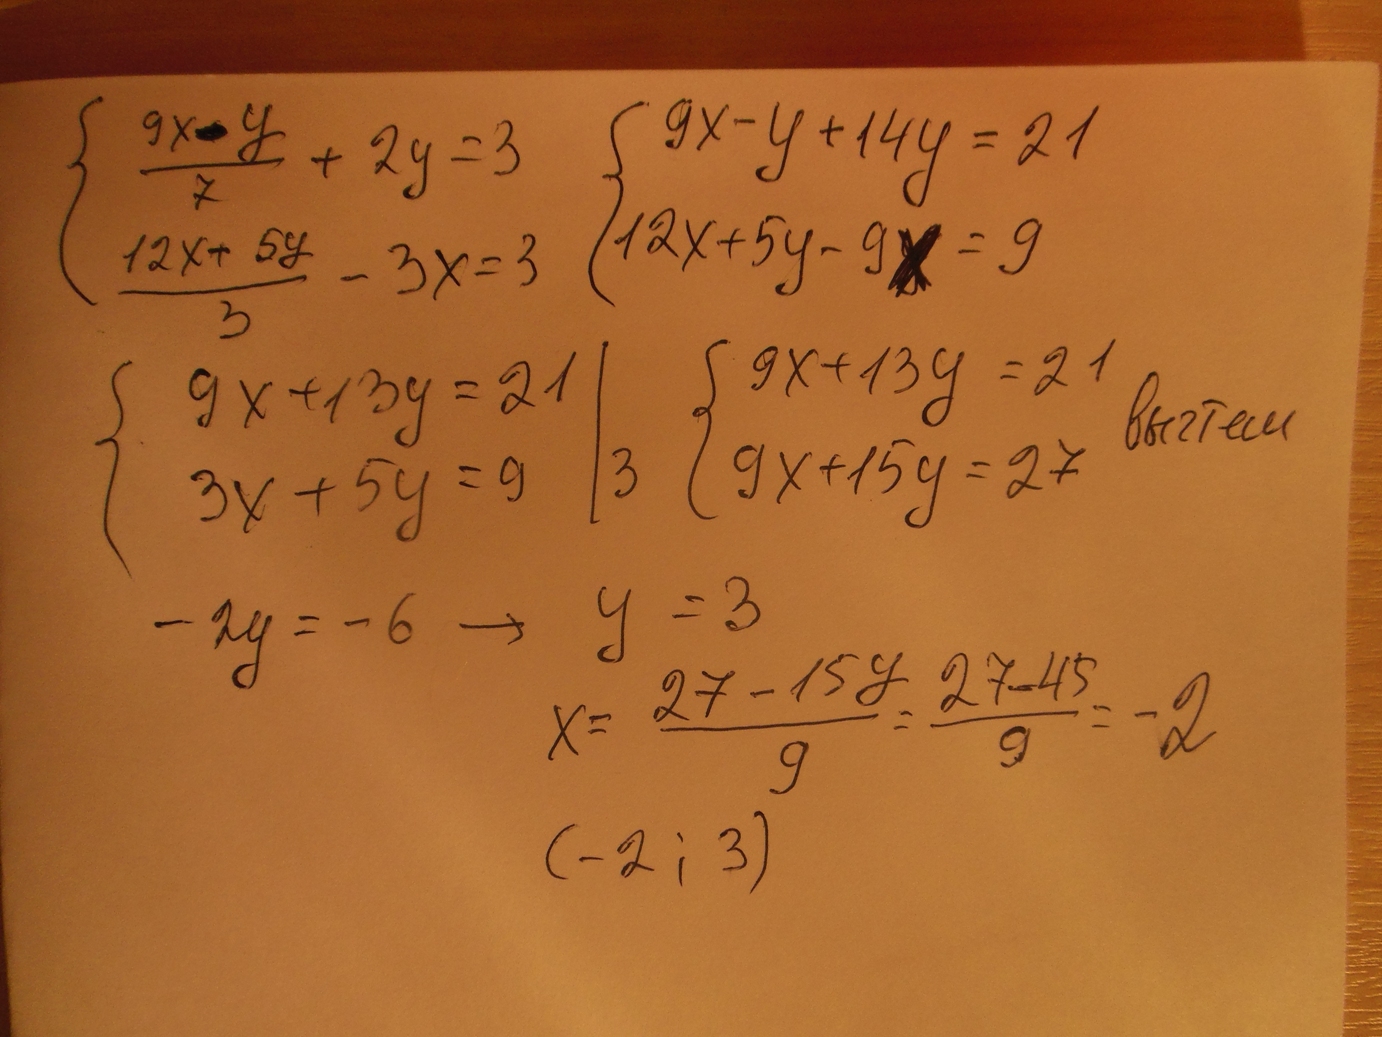 { (9x-y)/7 + 2y = 3
(12x+5y)/3 - 3x = 3
{ 9x-y+14y = 21
12x+5y-9x = 9
{ 9x+13y = 21
3x+5y = 9 | 3
{ 9x+13y = 21
9x+15y = 27
вычтем
-2y = -6 → y = 3
x = (27-15y)/9 = (27-45)/9 = -2
(-2; 3)